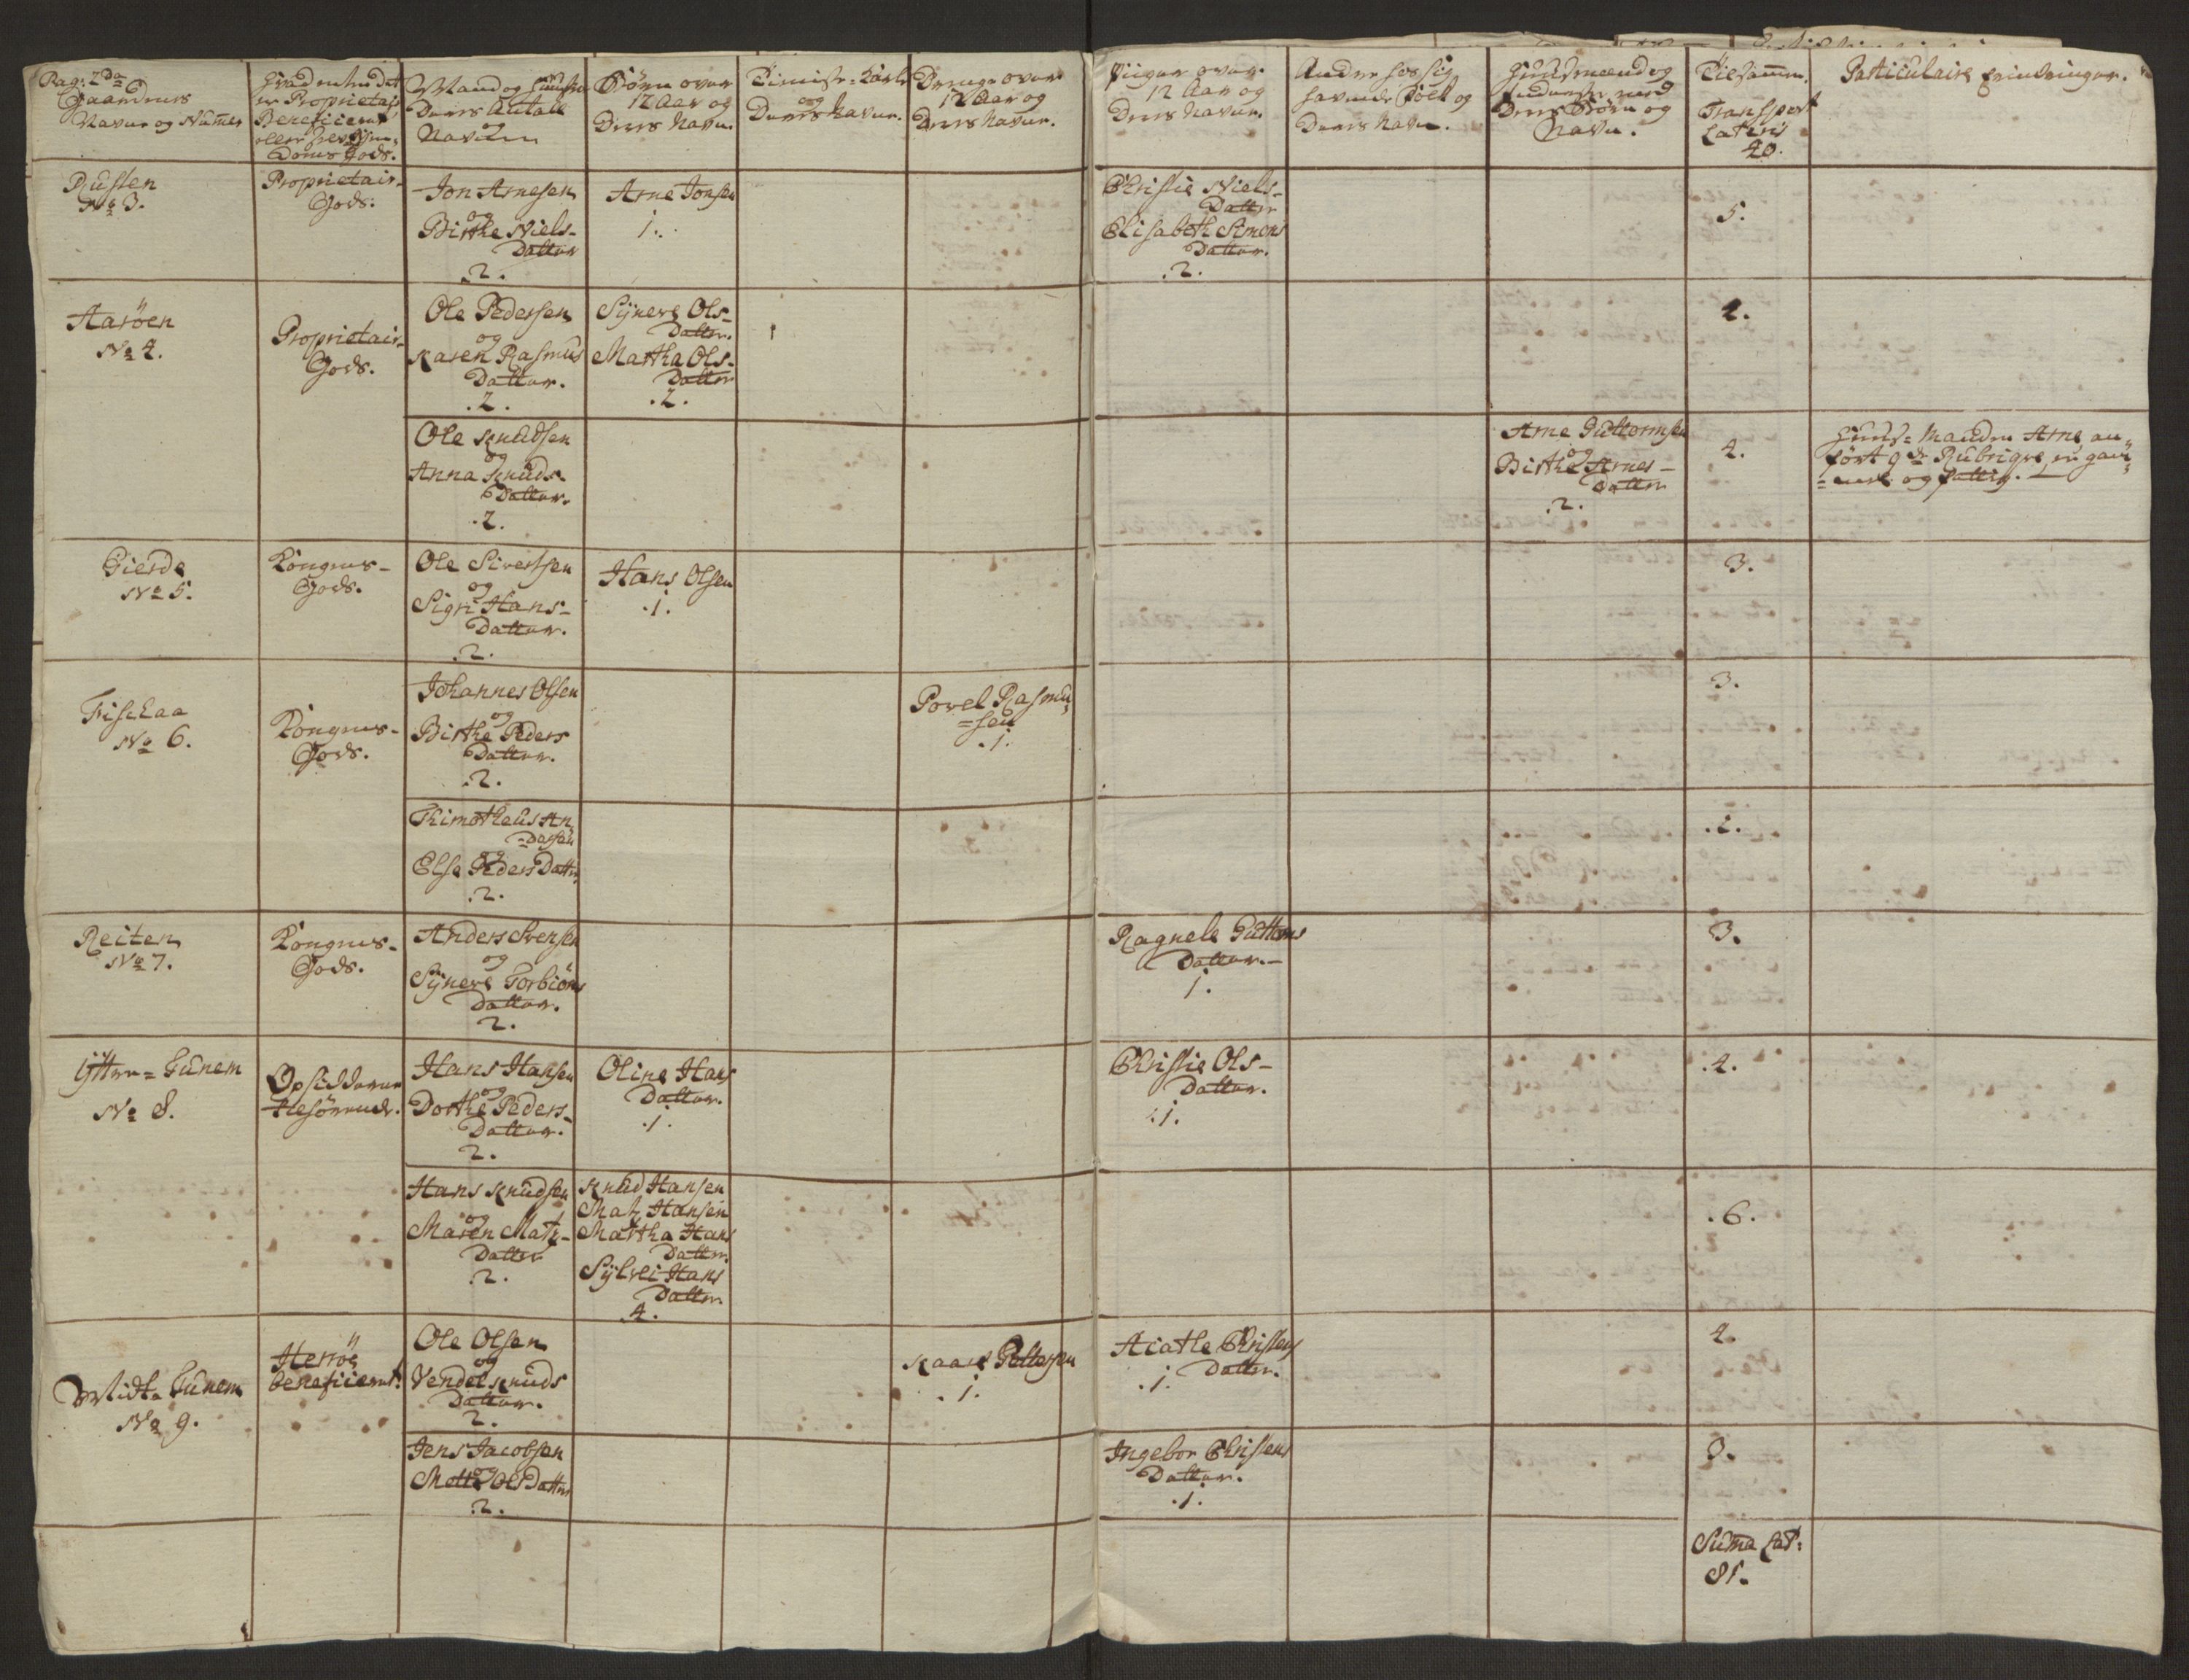 Pag: 2da
Gaardenes
Navne og Numer
Hvad enten det
er Proprietair
Beneficeret
eller
Doms Gods.
Mand og
Deres Antall
og
Navne
Börn over
12 Aar og
Deres Navn.
Tieniste-Karle
og
Deres Navne.
Drenge over
12 Aar og
Deres Navne.
Piiger over
12 Aar og
Deres Navne.
Andre hos sig
havende Folk og
Deres Navn.
Huusmænd og
med
Deres Börn og
Navn.
Tilsamm.
Transport
Lateris
40.
Particulaire Erindringer.
Rusten
No 3.
Proprietair-
Gods.
Jon Arnesen
og
Birthe Niels-
Datter
.2.
Arne Jonsen
1.
Christie Niels-
Datter
Elisabeth Simens
Datter.
.2.
5.
Aaröen
No 4.
Proprietair-
Gods.
Ole Pedersen
og
Karen Rasmus
Datter.
.2.
Synere Ols-
Datter.
Martha Ols-
Datter
.2.
4.
Ole Knudsen
og
Anna Knuds-
Datter.
.2.
Arne Guttormsen
og
Birthe Arnes-
Datter
.2.
4.
Huus-Manden Arne an-
fört 9de Rubriqve, er gam-
=mel og fattig.
Gierde
No 5.
Kongens-
Gods.
Ole Sivertsen
og
Sigri Hans-
Datter.
.2.
Hans Olsen
.1.
3.
Fischaa
No 6.
Kongens-
Gods.
Johannes Olsen
og
Birthe Peders
Datter.
.2.
Povel Rasmu-
=sen
.1.
3.
Thimotheus An-
=dersen
og
Else Peders Datter
.2.
.2.
Reiten
No 7.
Kongens-
Gods.
Anders Svensen
og
Synere Torbiörns
Datter.
2.
Ragnele Guttorms
Datter.-
1.
3.
Ytter-Tunem
No 8.
Opsidderne
tilhörende.
Hans Hansen
og
Dorthe Peders-
Datter.
2.
Oline Hans
Datter.
.1.
Christie Ols-
Datter.
.1.
.4.
Hans Knudsen
og
Maren Matz-
Datter
.2.
Knud Hansen
Matz Hansen
Martha Hans
Datter.
Sylvei Hans
Datter.
.4.
.6.
Midt-Tunem
No 9.
Herröe
Beneficeret.
Ole Olsen
og
Vendel Knuds
Datter.
2.
Kaare Pettersen
.1.
Aiathe Christens
Datter.
.1.
4.
Jens Jacobsen
og
Mette Ols Datter
.2.
Ingebor Christens
Datter.
.1.
3.
Suma Lat:
81.